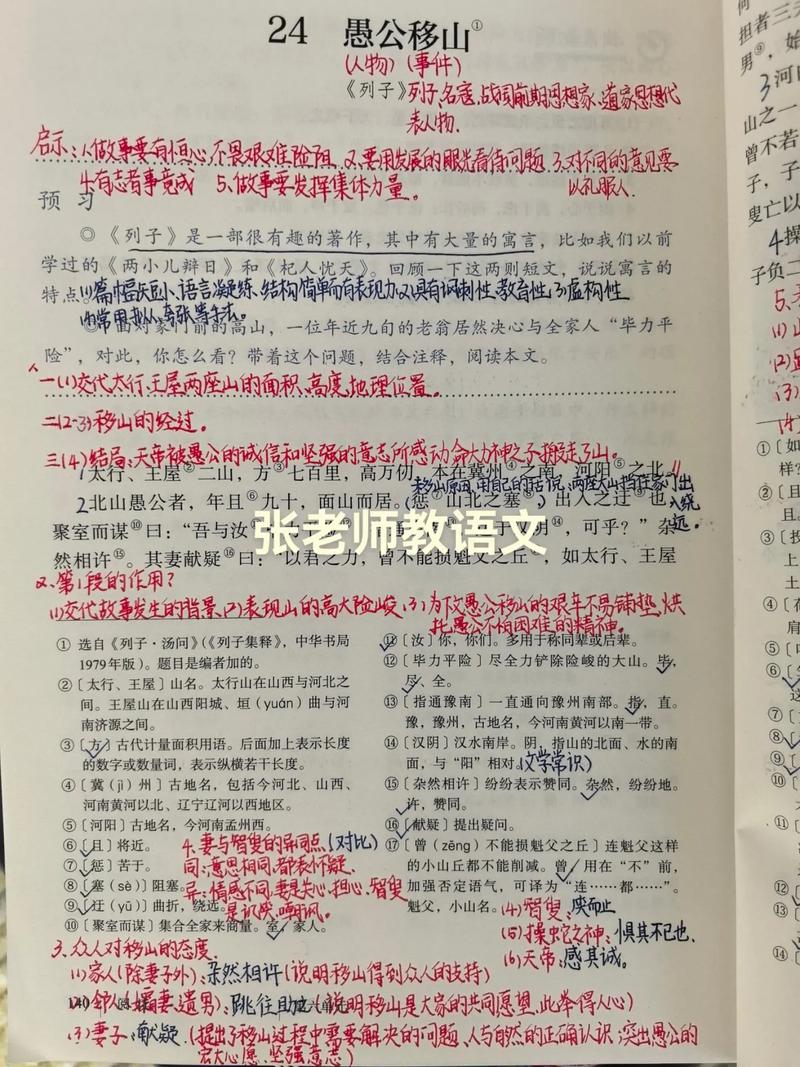 24 愚公移山①
(人物)(事件)
《列子》列子,名寇,战国前期思想家、道家思想代
表人物.
启示:1.做事要有恒心,不畏艰难险阻 2.要用发展的眼光看待问题 3.对不同的意见要
以礼服人.
4.有志者事竟成 5.做事要发挥集体力量。
预 习
◎《列子》是一部很有趣的著作,其中有大量的寓言,比如我们以前
学过的《两小儿辩日》和《杞人忧天》。回顾一下这两则短文,说说寓言的
特点。(1)篇幅短小、语言凝练、结构简单而有表现力 (2)具有讽刺性、教育性 (3)虚构性
(4)常用拟人、夸张等手法。
家门前的高山,一位年近九旬的老翁居然决心与全家人“毕力平
险”,对此,你怎么看?带着这个问题,结合注释,阅读本文。
一(1)交代太行、王屋两座山的面积、高度、地理位置。
二(2-3)移山的经过。
三(4)结局:天帝被愚公的诚信和坚强的意志所感动,命大力神之子搬走了山。
1太行、王屋②二山,方③七百里,高万仞,本在冀州④之南,河阳⑤之北。
移山原因,用自己的话说:两座大山挡在家门
2北山愚公者,年且⑥九十,面山而居。惩⑦山北之塞⑧,出入之迂⑨也,
聚室而谋⑩曰:“吾与汝
汉阴⑭,可乎?”杂
然相许⑮。其妻献疑⑯曰:“以君之力,曾不能损魁父之丘⑰,如太行、王屋
张老师教语文
2.第1段的作用?
(1)交代故事发生的背景(2)表现山的高大险峻(3)为下文愚公移山的艰辛不易铺垫,烘
托愚公不怕困难的精神。
① 选自《列子·汤问》(《列子集释》,中华书局
1979年版)。题目是编者加的。
②〔太行、王屋〕山名。太行山在山西与河北之
间。王屋山在山西阳城、垣(yuán)曲与河
南济源之间。
③〔方〕古代计量面积用语。后面加上表示长度
的数字或数量词,表示纵横若干长度。
④〔冀(jì)州〕古地名,包括今河北、山西、
河南黄河以北、辽宁辽河以西地区。
⑤〔河阳〕古地名,今河南孟州西。
⑥〔且〕将近。
⑦〔惩〕苦于。
⑧〔塞(sè)〕阻塞。
⑨〔迂(yū)〕曲折,绕远。
⑩〔聚室而谋〕集合全家来商量。室,家人。
4.妻与智叟的异同点(对比)
同:意思相同,都表怀疑.
异:情感不同,妻是关心、担心,智叟
是讥笑、嘲讽。
⑪〔汝〕你,你们。多用于称同辈或后辈。
⑫〔毕力平险〕尽全力铲除险峻的大山。毕,
尽、全。
⑬〔指通豫南〕一直通向豫州南部。指,直。
豫,豫州,古地名,今河南黄河以南一带。
⑭〔汉阴〕汉水南岸。阴,指山的北面、水的南
面,与“阳”相对。(文学常识)
⑮〔杂然相许〕纷纷表示赞同。杂然,纷纷地。
许,赞同。
⑯〔献疑〕提出疑问。
⑰〔曾(zēng)不能损魁父之丘〕连魁父这样
的小山丘都不能削减。曾,用在“不”前,
加强否定语气,可译为“连……都……”。
魁父,小山名。
(4)智叟:笑而止
(5)操蛇之神:惧其不已.
(6)天帝:感其诚。
3.众人对移山的态度.
(1)家人(除妻子外):杂然相许(说明移山得到众人的支持)
(2)邻人(孀妻、遗男):跳往助之(说明移山是大家的共同愿望,此举得人心)
140 第六单元
(3)妻子:献疑(提出了移山过程中需要解决的问题,人与自然的正确认识;突出愚公的
宏大心愿、坚强意志)
担者三
男⑨,始
3河
山之一
曾不若
子,子
叟亡以
4操
子负二